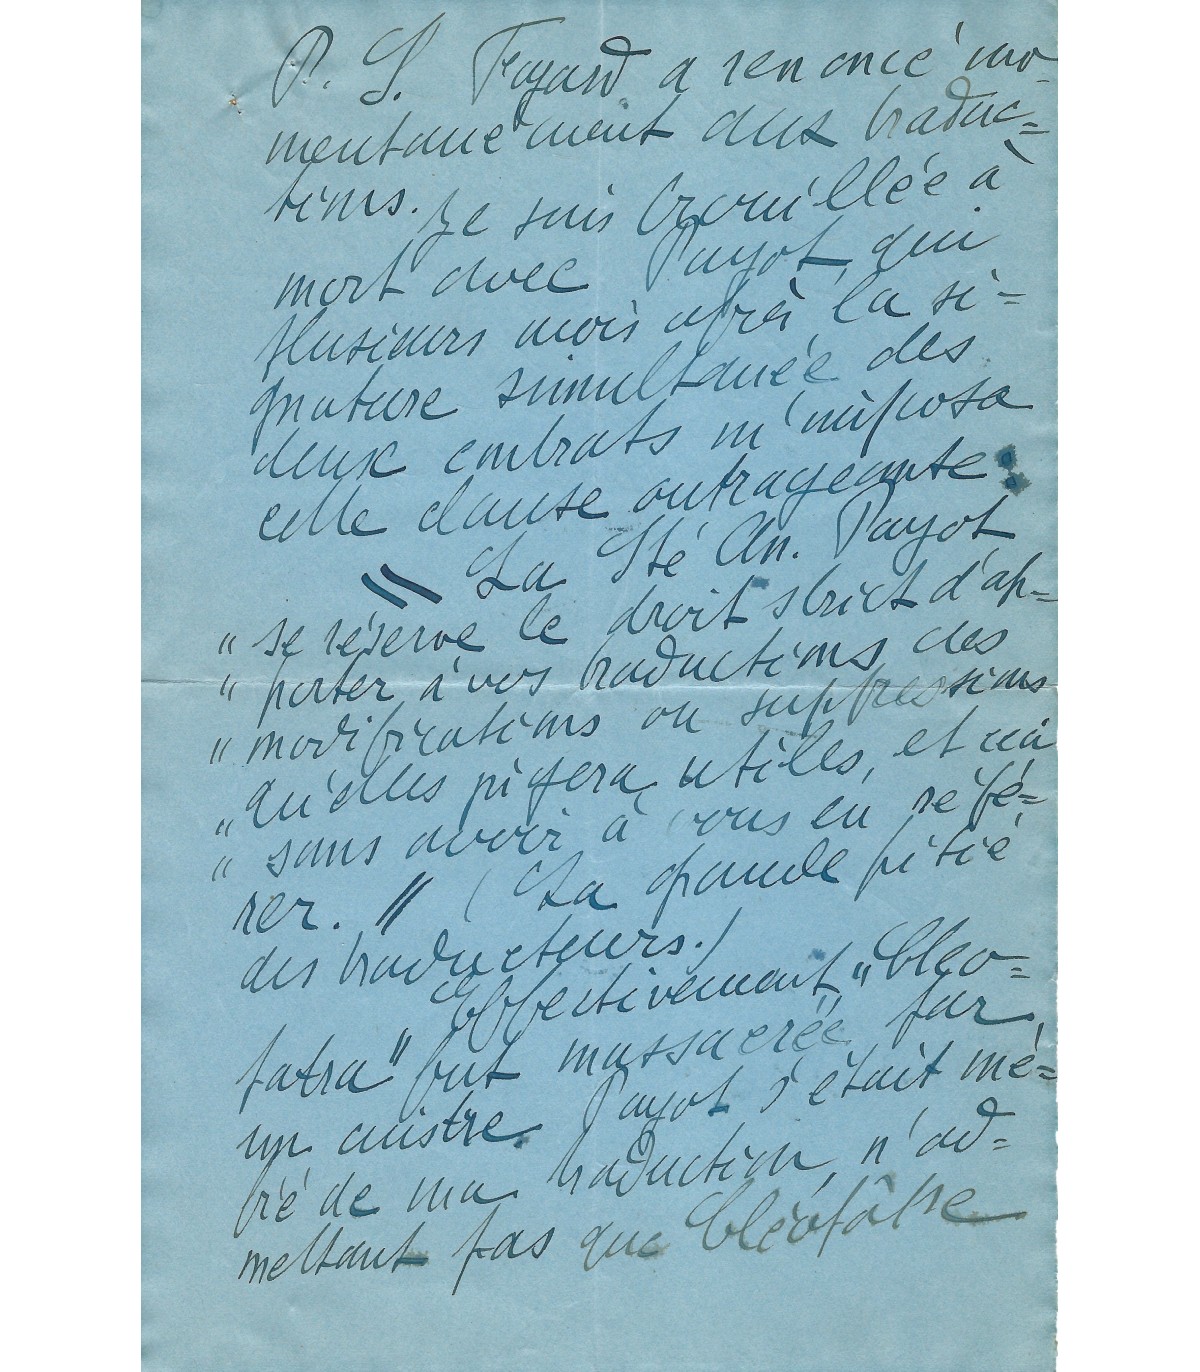 P. S. Fayard a renoncé mo-
mentanément aux traduc=
tions. Je suis brouillée à
mort avec Payot, qui
plusieurs mois après la si=
gnature simultanée des
deux contrats m'imposa
cette clause outrageante :
" La Sté An. Payot
" se réserve le droit strict d'ap=
" porter à vos traductions des
" modifications ou suppressions
" qu'elles jugera utiles, et
" sans avoir à vous en réfé=
rer. " (La grande pitié
des traducteurs!)
Effectivement "Cléo=
patra" fut massacrée par
un cuistre. Payot s'était mé=
fié de ma traduction, n'ad=
mettant pas que Cléopâtre